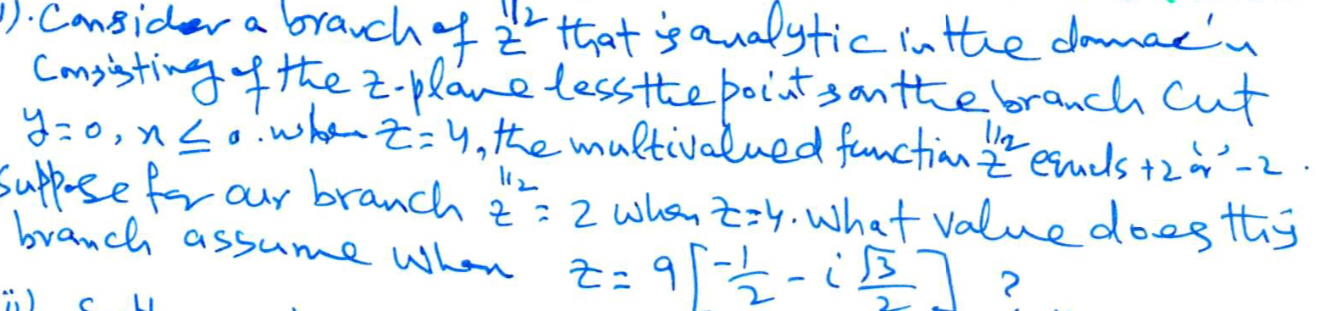 i). Consider a branch of z^{1/2} that is analytic in the domain
Consisting of the z-plane less the points on the branch cut
y=0, x ≤ 0. when z=4, the multivalued function z^{1/2} equals +2 or -2.
Suppose for our branch z^{1/2} = 2 when z=4. What value does this
branch assume when z = 9[-1/2 - i √3/2] ?
ii)